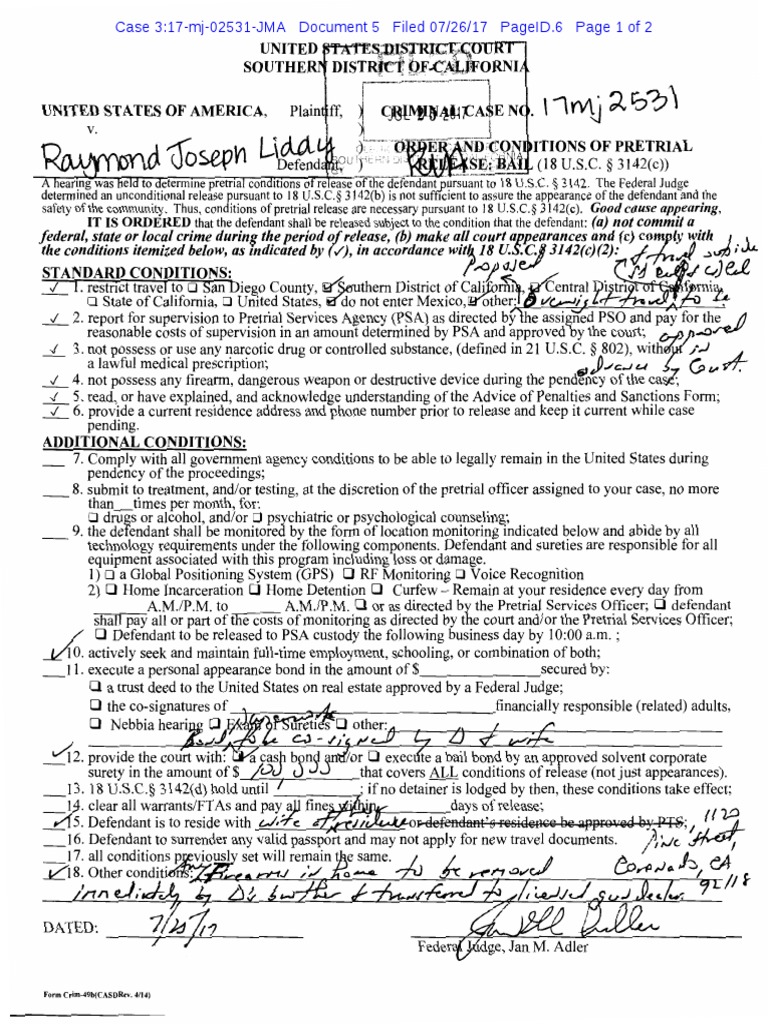 Case 3:17-mj-02531-JMA Document 5 Filed 07/26/17 PageID.6 Page 1 of 2
UNITED STATES DISTRICT COURT
SOUTHERN DISTRICT OF CALIFORNIA
UNITED STATES OF AMERICA, Plaintiff, ) CRIMINAL CASE NO. 17mj2531
v. )
Raymond Joseph Liddy ) ORDER AND CONDITIONS OF PRETRIAL
Defendant, ) RELEASE; BAIL (18 U.S.C. § 3142(c))
A hearing was held to determine pretrial conditions of release of the defendant pursuant to 18 U.S.C. § 3142. The Federal Judge
determined an unconditional release pursuant to 18 U.S.C. § 3142(b) is not sufficient to assure the appearance of the defendant and the
safety of the community. Thus, conditions of pretrial release are necessary pursuant to 18 U.S.C. § 3142(c). Good cause appearing,
IT IS ORDERED that the defendant shall be released subject to the condition that the defendant: (a) not commit a
federal, state or local crime during the period of release, (b) make all court appearances and (c) comply with
the conditions itemized below, as indicated by (✓), in accordance with 18 U.S.C.§ 3142(c)(2):
Proposed travel outside
STANDARD CONDITIONS:
✓ 1. restrict travel to ❑ San Diego County, ☑ Southern District of California, ☑ Central District of California,
❑ State of California, ❑ United States, ☑ do not enter Mexico, ☑ other: Overnight travel to be
✓ 2. report for supervision to Pretrial Services Agency (PSA) as directed by the assigned PSO and pay for the
reasonable costs of supervision in an amount determined by PSA and approved by the court; approved
✓ 3. not possess or use any narcotic drug or controlled substance, (defined in 21 U.S.C. § 802), without in
a lawful medical prescription; advance by Court.
✓ 4. not possess any firearm, dangerous weapon or destructive device during the pendency of the case;
✓ 5. read, or have explained, and acknowledge understanding of the Advice of Penalties and Sanctions Form;
✓ 6. provide a current residence address and phone number prior to release and keep it current while case
pending.
ADDITIONAL CONDITIONS:
___ 7. Comply with all government agency conditions to be able to legally remain in the United States during
pendency of the proceedings;
___ 8. submit to treatment, and/or testing, at the discretion of the pretrial officer assigned to your case, no more
than__times per month, for:
❑ drugs or alcohol, and/or ❑ psychiatric or psychological counseling;
___ 9. the defendant shall be monitored by the form of location monitoring indicated below and abide by all
technology requirements under the following components. Defendant and sureties are responsible for all
equipment associated with this program including loss or damage.
1) ❑ a Global Positioning System (GPS) ❑ RF Monitoring ❑ Voice Recognition
2) ❑ Home Incarceration ❑ Home Detention ❑ Curfew – Remain at your residence every day from
______A.M./P.M. to ______ A.M./P.M. ❑ or as directed by the Pretrial Services Officer; ❑ defendant
shall pay all or part of the costs of monitoring as directed by the court and/or the Pretrial Services Officer;
❑ Defendant to be released to PSA custody the following business day by 10:00 a.m. ;
✓ 10. actively seek and maintain full-time employment, schooling, or combination of both;
___ 11. execute a personal appearance bond in the amount of $______________secured by:
❑ a trust deed to the United States on real estate approved by a Federal Judge;
❑ the co-signatures of ______________________________financially responsible (related) adults,
❑ Nebbia hearing ❑ Exam of Sureties ❑ other:
Bond to be co-signed by D & wife
✓ 12. provide the court with: ☑ a cash bond and/or ❑ execute a bail bond by an approved solvent corporate
surety in the amount of $ 100 000 that covers ALL conditions of release (not just appearances).
___ 13. 18 U.S.C.§ 3142(d) hold until __________; if no detainer is lodged by then, these conditions take effect;
___ 14. clear all warrants/FTAs and pay all fines within ________days of release;
✓ 15. Defendant is to reside with wife at residence or defendant's residence be approved by PTS; 1120
___ 16. Defendant to surrender any valid passport and may not apply for new travel documents. Pine Street,
___ 17. all conditions previously set will remain the same. Coronado, CA
✓ 18. Other conditions: Any Firearms in home to be removed 92118
immediately by D's brother & transferred to licensed gun dealer.
DATED: 7/25/17
Federal Judge, Jan M. Adler
Form Crim-49b(CASDRev. 4/14)